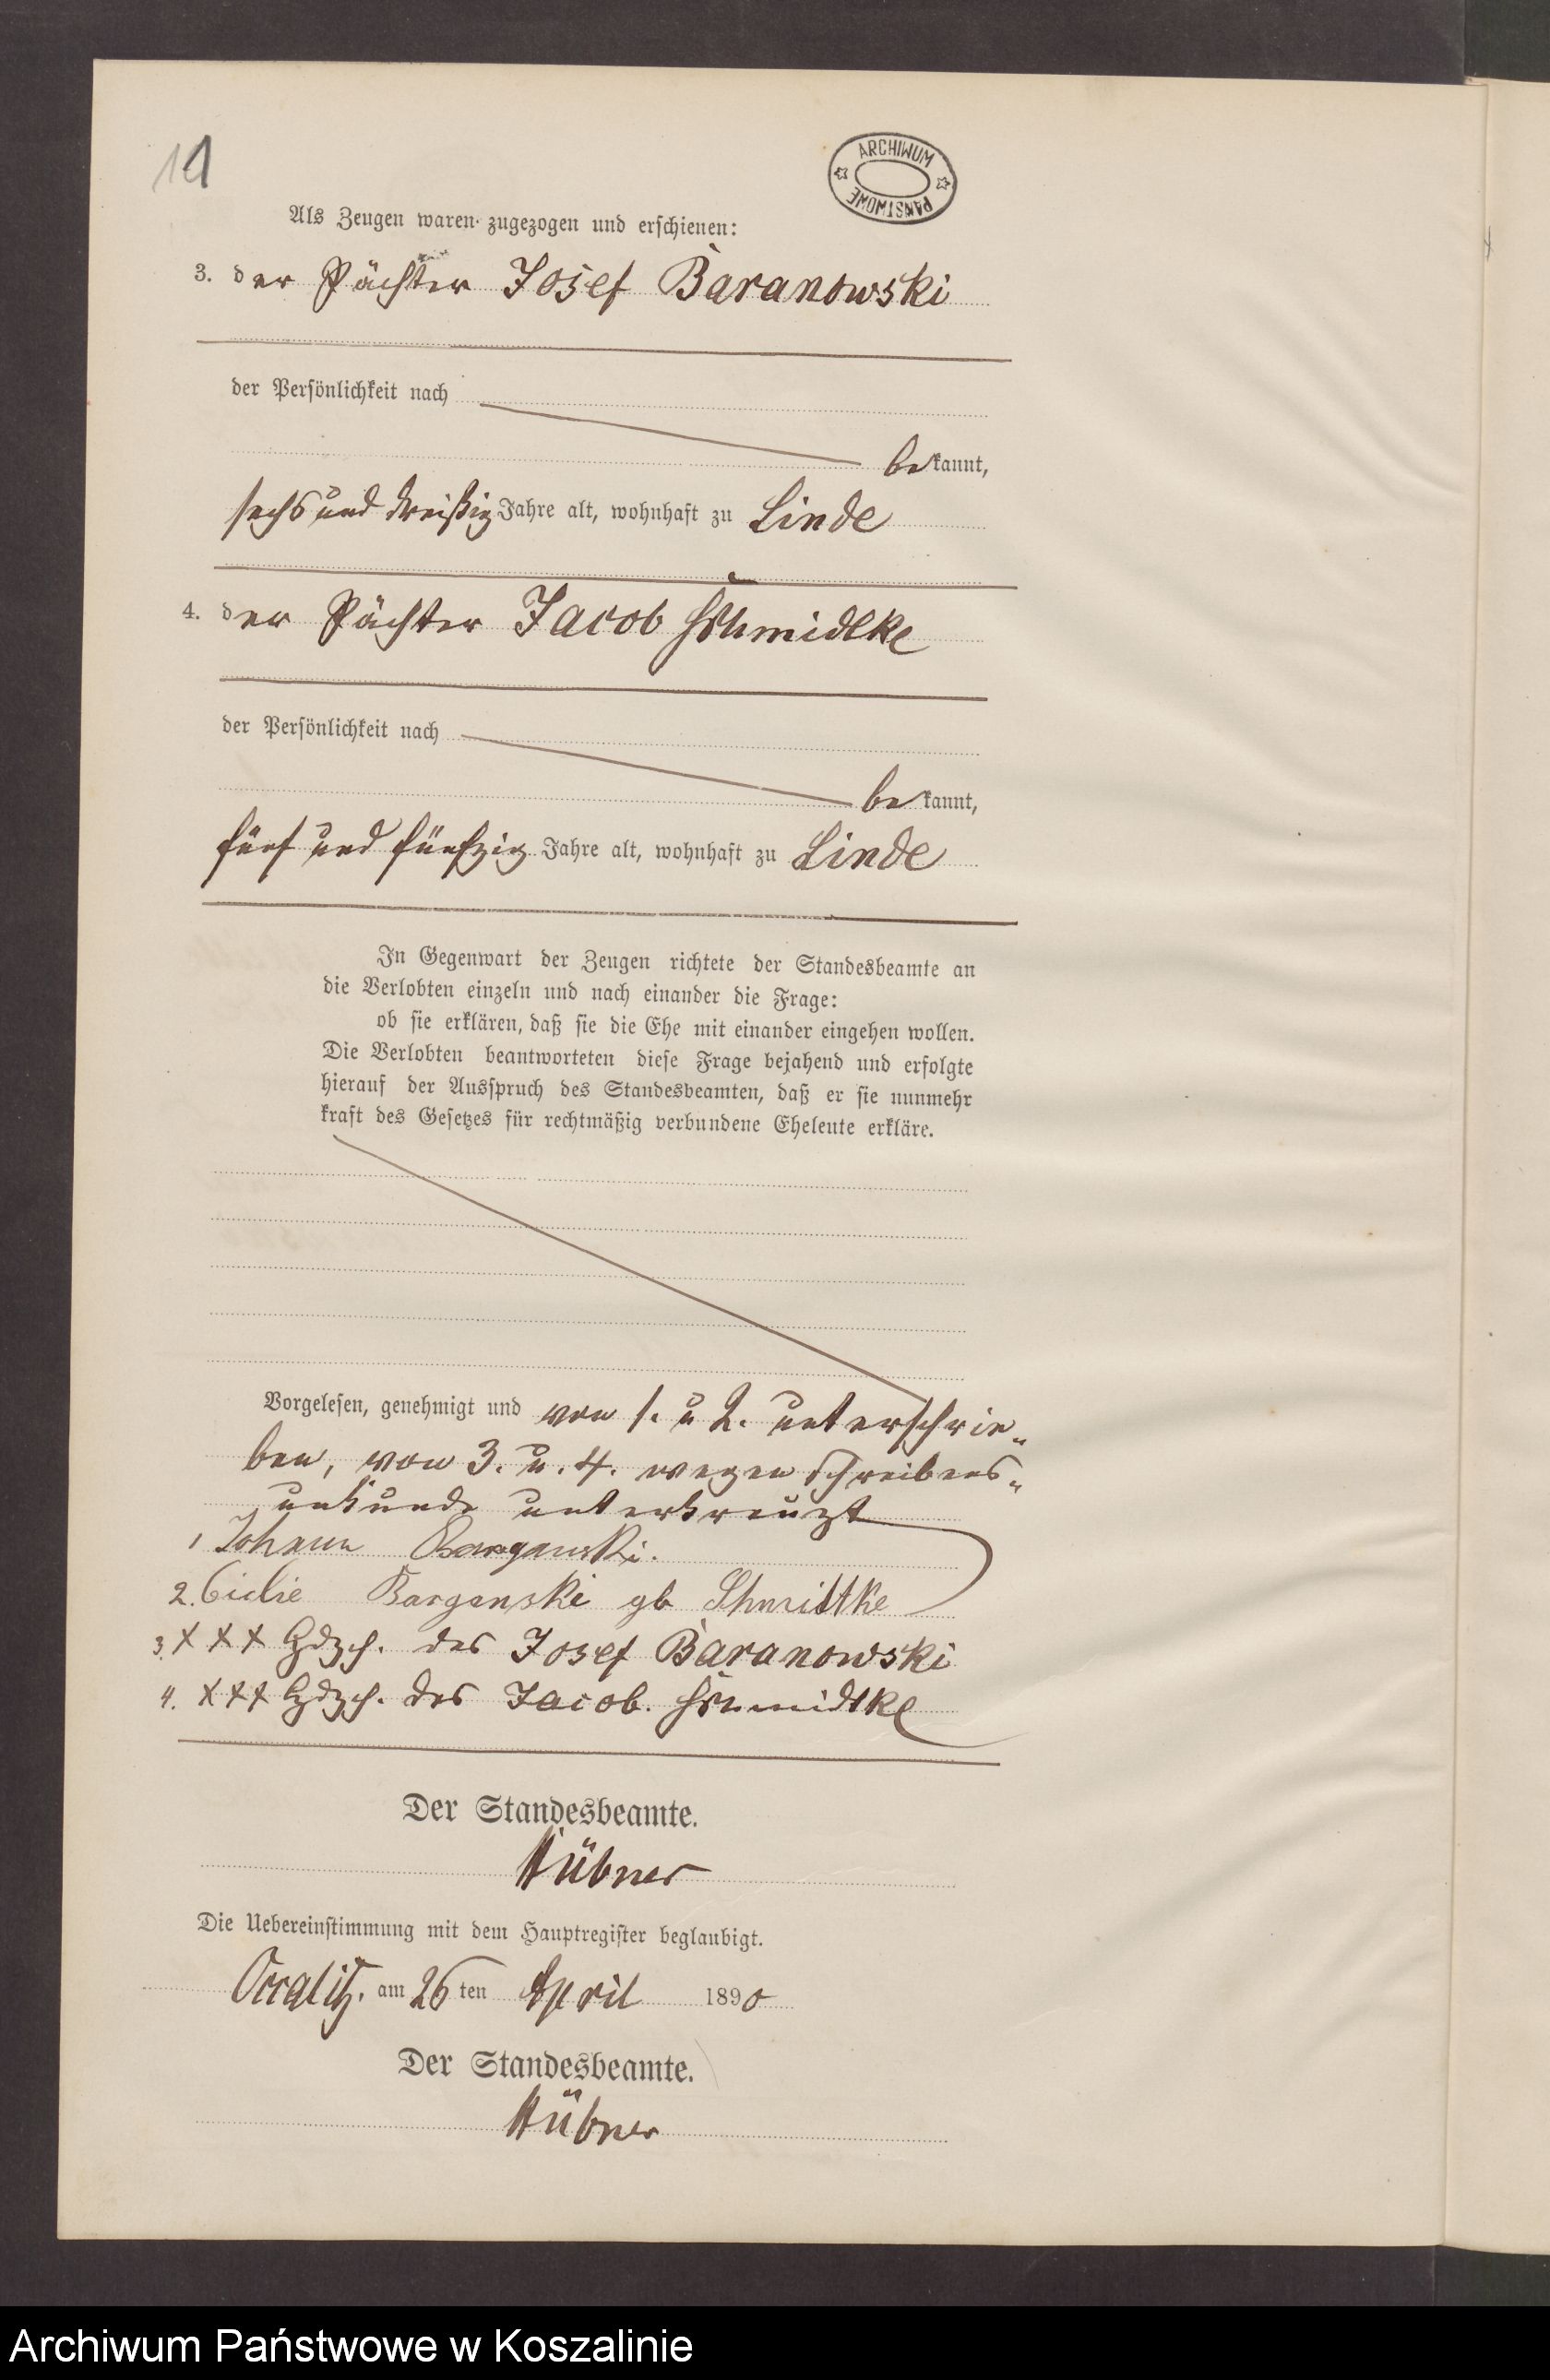 11
ARCHIWUM PAŃSTWOWE
Als Zeugen waren zugezogen und erschienen:
3. der Pächter Josef Baranowski
der Persönlichkeit nach
bekannt,
sechs und dreißig Jahre alt, wohnhaft zu Linde
4. der Pächter Jacob Schmidtke
der Persönlichkeit nach
bekannt,
fünf und fünfzig Jahre alt, wohnhaft zu Linde
In Gegenwart der Zeugen richtete der Standesbeamte an
die Verlobten einzeln und nach einander die Frage:
ob sie erklären, daß sie die Ehe mit einander eingehen wollen.
Die Verlobten beantworteten diese Frage bejahend und erfolgte
hierauf der Ausspruch des Standesbeamten, daß er sie nunmehr
kraft des Gesetzes für rechtmäßig verbundene Eheleute erkläre.
Vorgelesen, genehmigt und von 1. u 2. unterschrie„
ben, von 3. u. 4. wegen Schreibens„
unkunde unterkreuzt
1 Johann
2. Barganski gb Schmittke
3. XXX Hdzch. des Josef Baranowski
4. XXX Hdzch. des Jacob. Schmidtke
Der Standesbeamte.
Hübner
Die Uebereinstimmung mit dem Hauptregister beglaubigt.
am 26ten April 1890
Der Standesbeamte.
Hübner
Archiwum Państwowe w Koszalinie